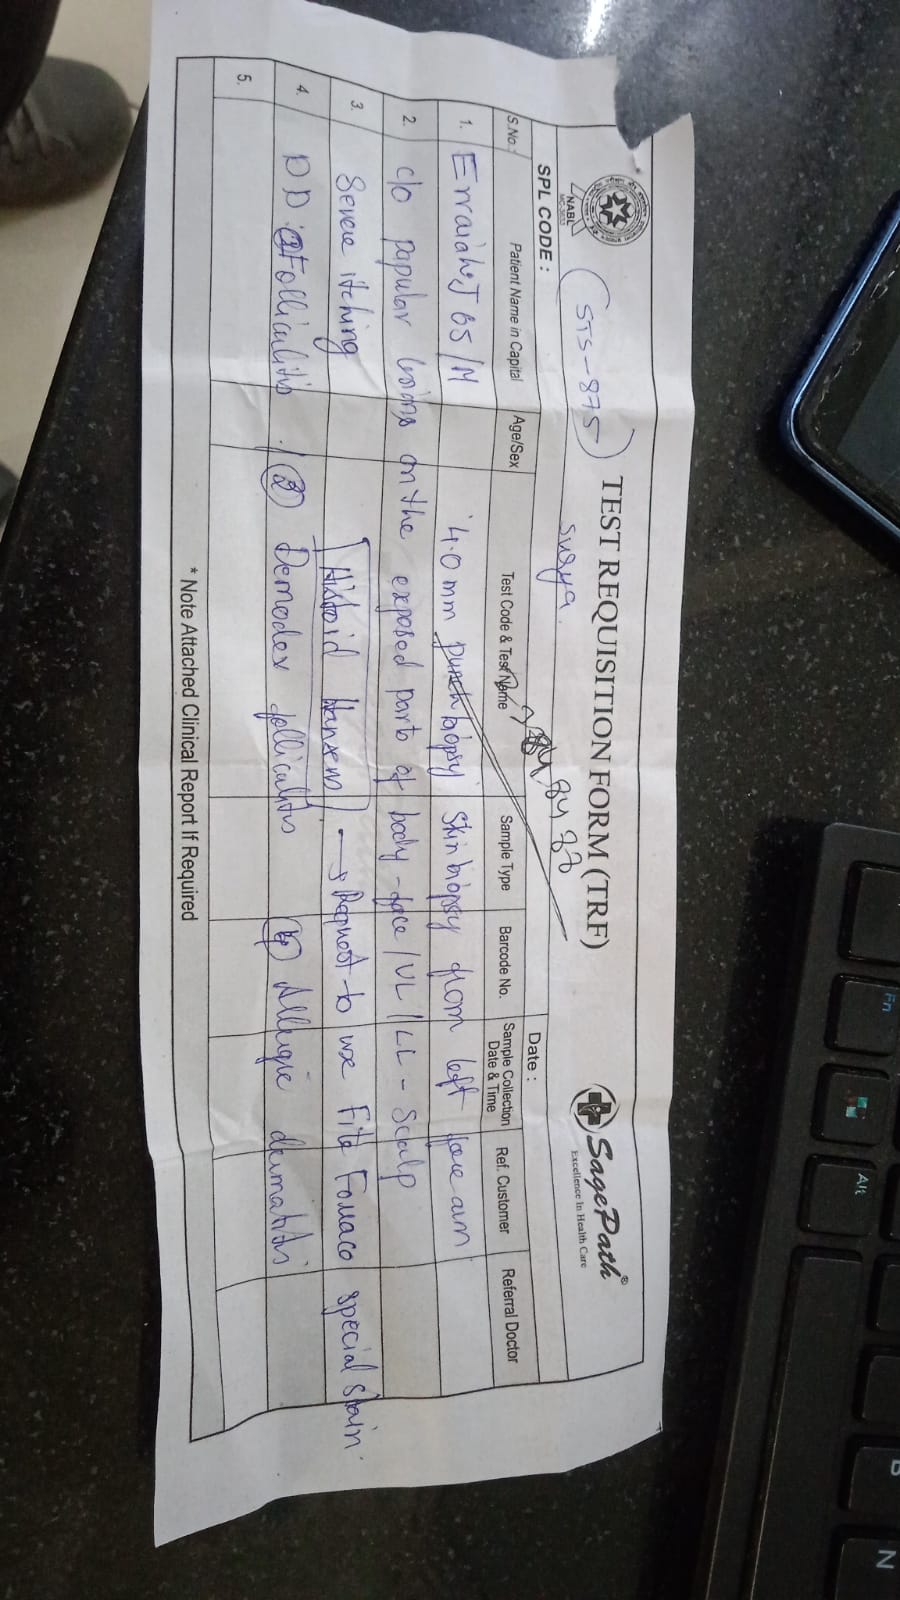 TEST REQUISITION FORM (TRF)
NABL
SagePath®
Excellence In Health Care
(STS-875)
Surya.
SPL CODE :
Date :
S.No. Patient Name in Capital Age/Sex Test Code & Test Name Sample Type Barcode No. Sample Collection Date & Time Ref. Customer Referral Doctor
1. Erraiah.J 65/M 4.0 mm punch biopsy skin biopsy from left fore arm
2. c/o papular lesions on the exposed parts of body - face /UL /LL - scalp
3. Severe itching Histoid Hansens → Request to use Fite Faraco special stain.
4. DD ① Folliculitis / ② Demodex folliculitis ④ Allergic dermatitis
5.
* Note Attached Clinical Report If Required
Fn
Alt
B
N